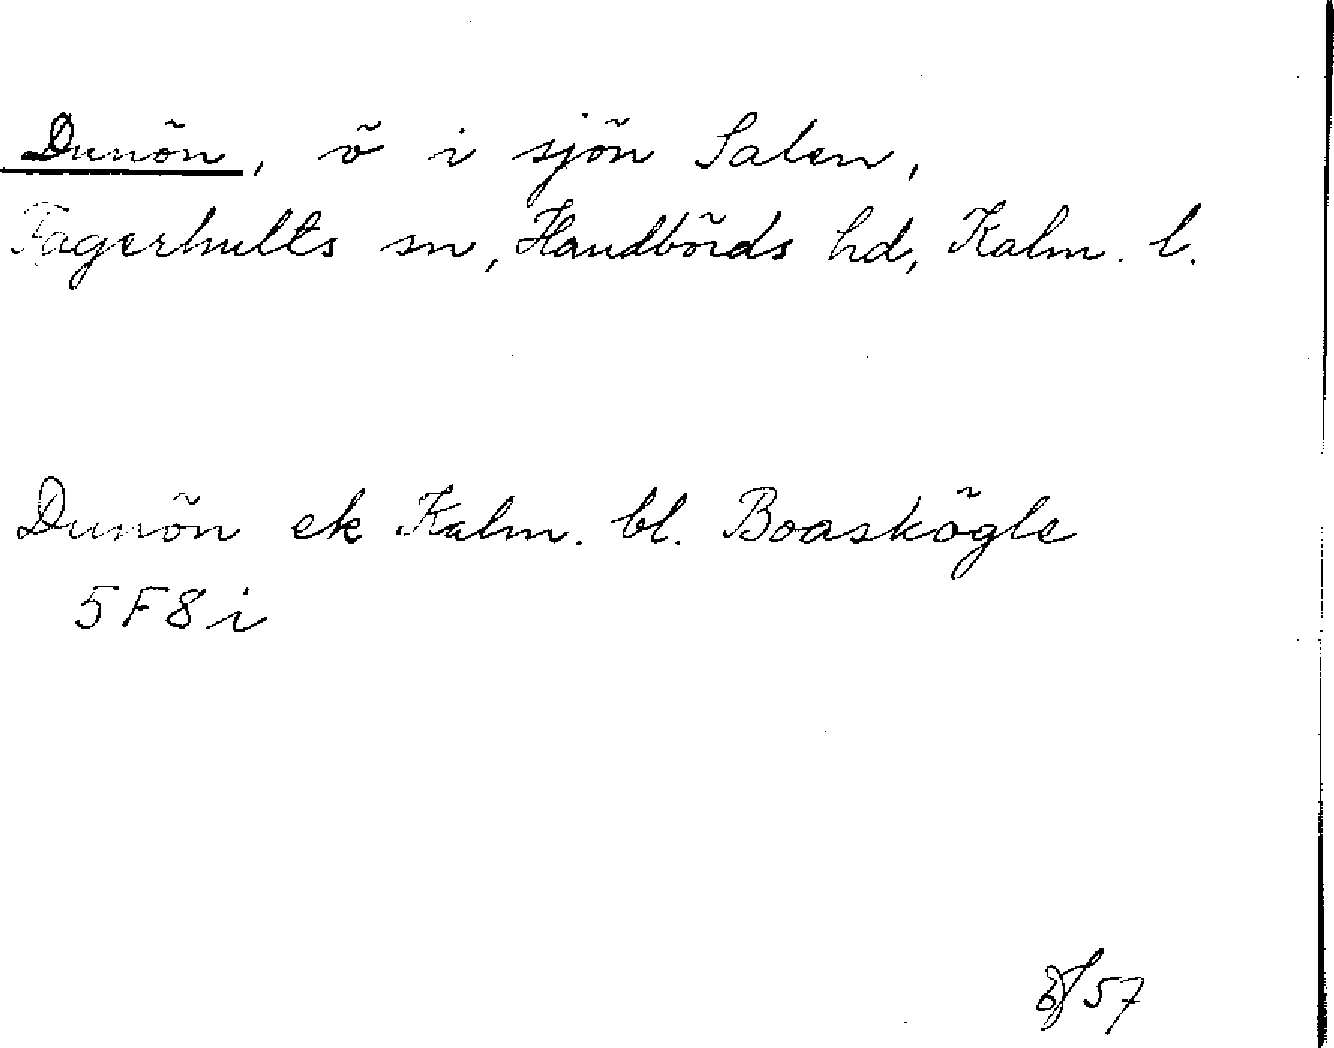 Dunön, ö i sjön Salen,
Fagerhults sn, Handbörds hd, Kalm. l.
Dunön ek Kalm. bl. Boaskögle
5F8i
57